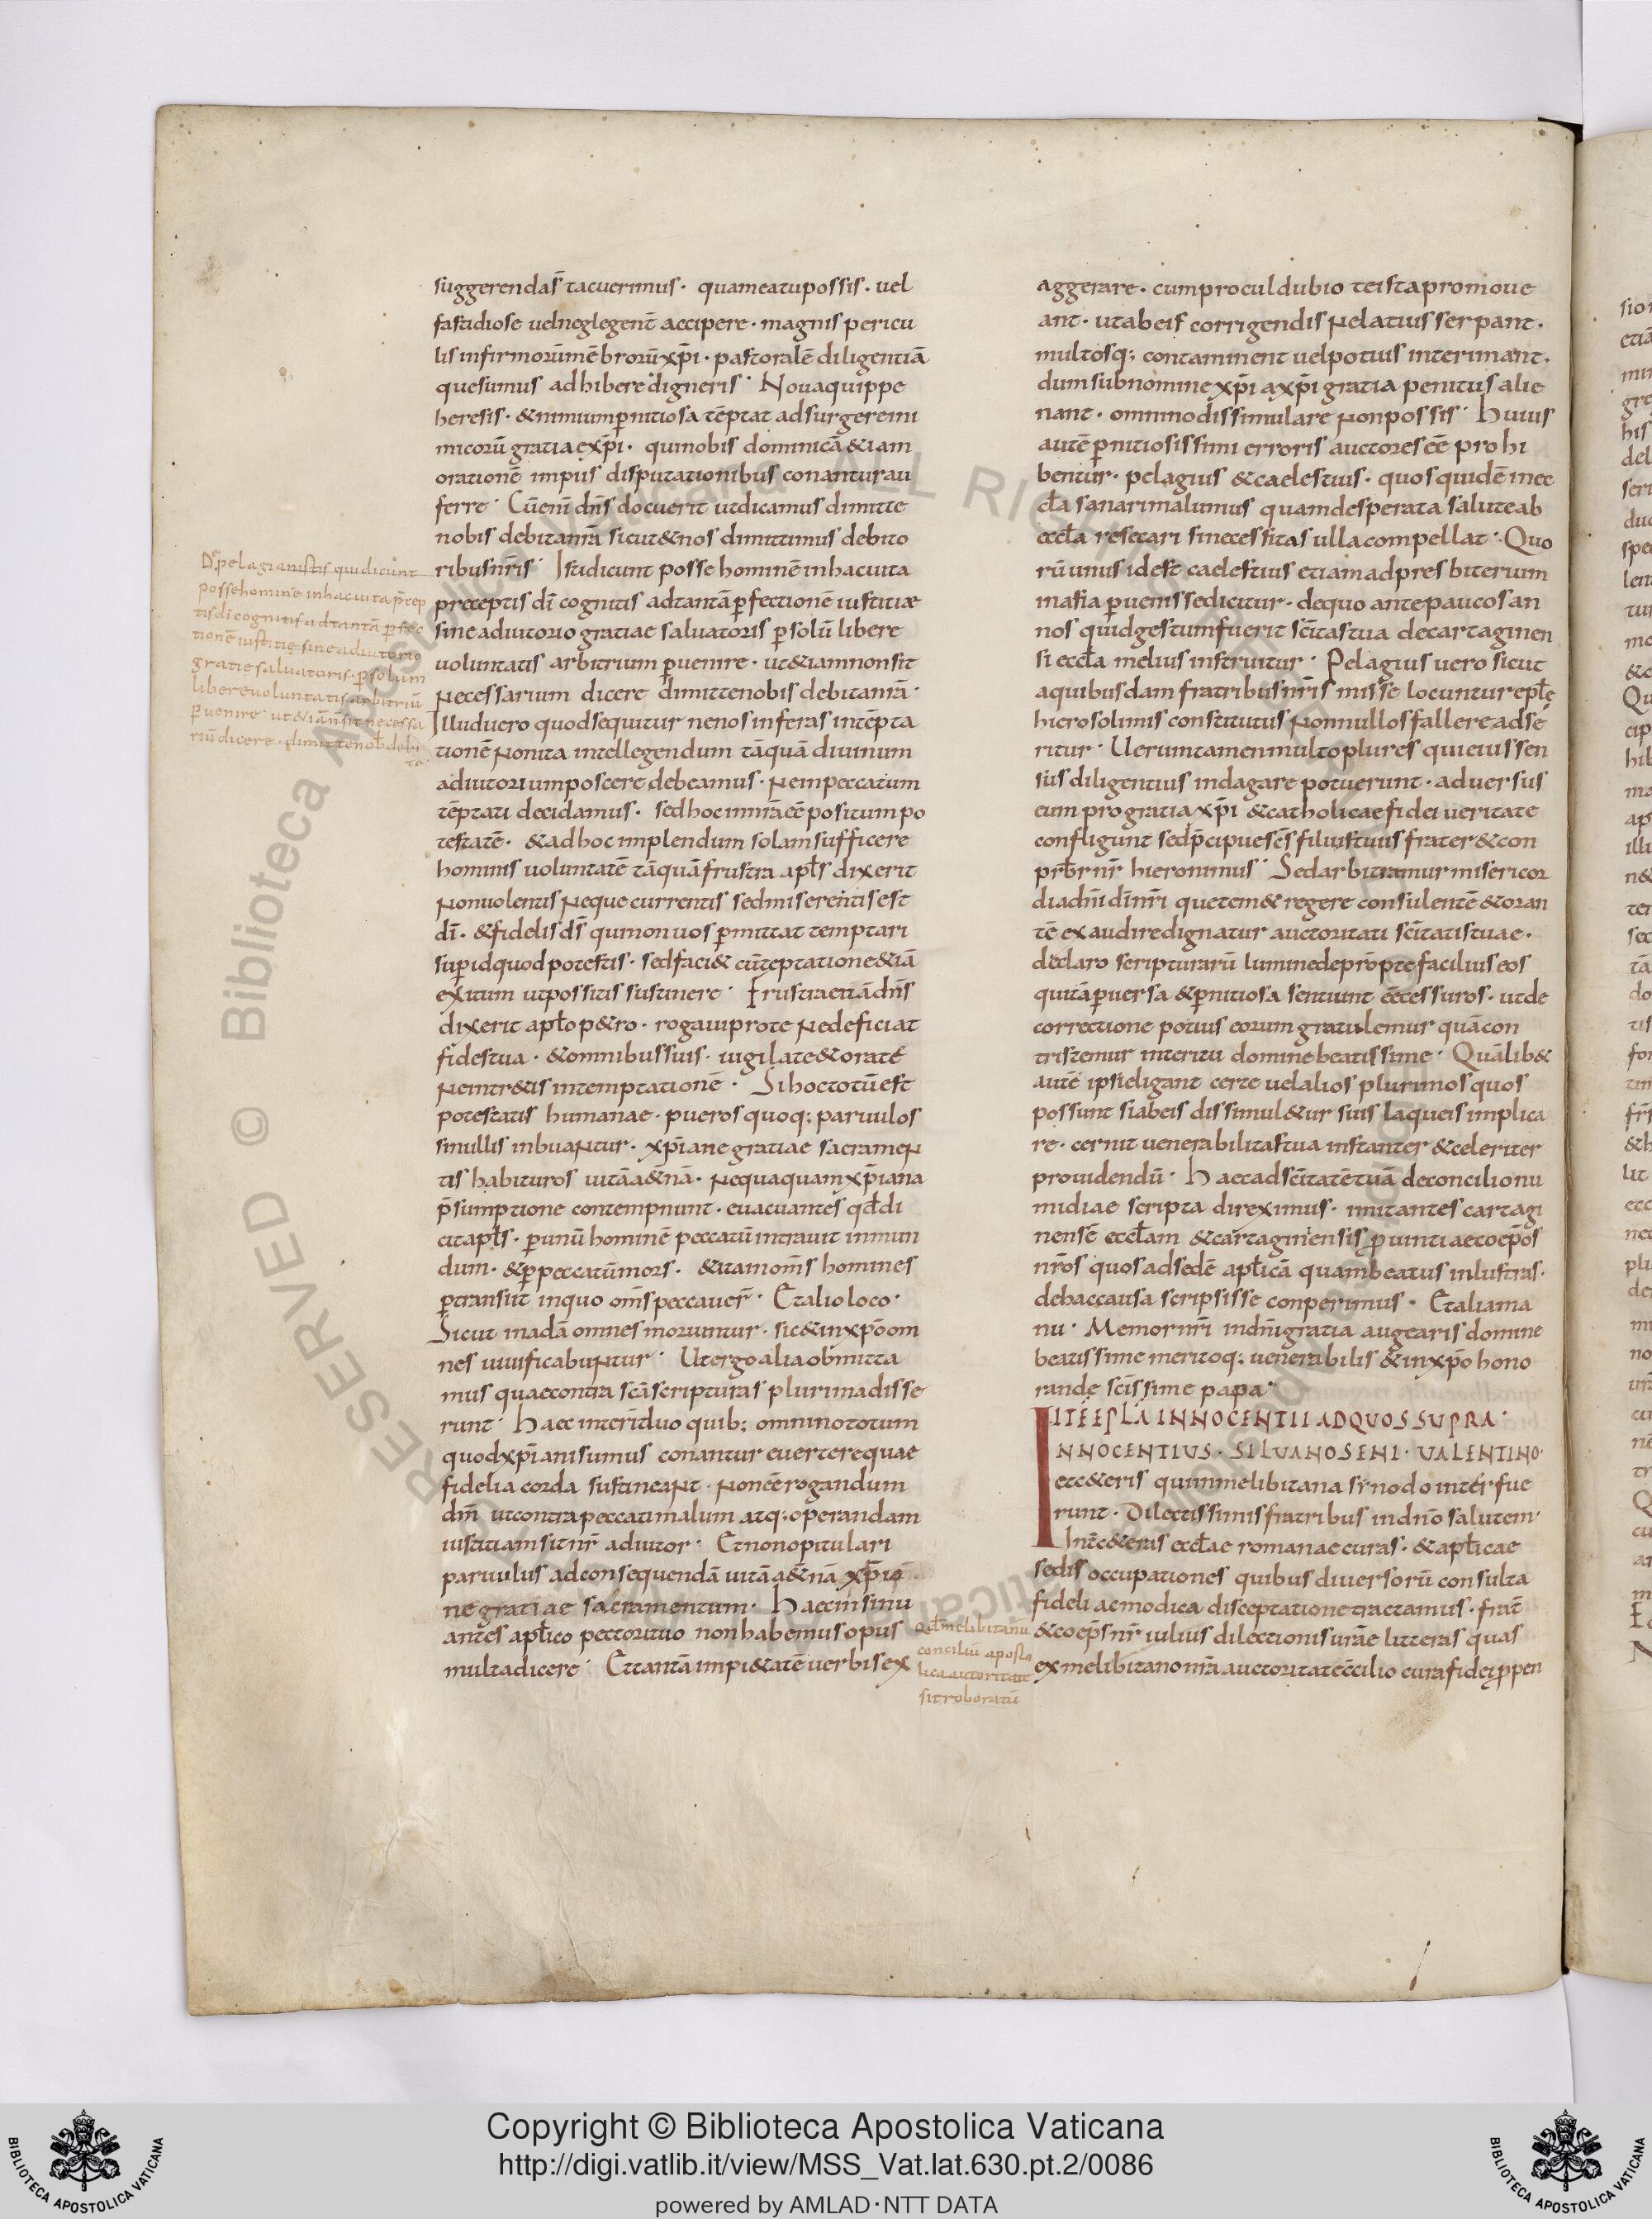 suggerendas̄ tacuerimus · quam ea tu possis · uel
fastidiose uel neglegent̄ accipere · magnis pericu
lis infirmorū mēbrorū xp̄i · pastoralē diligentiā
quesumus adhibere digneris · Noua quippe
heresis · & nimium p̄nitiosa tēptat adsurgere ini
micorū gratiae xp̄i · qui nobis dominicā & iam
orationē impiis disputationibus conantur au
ferre · Cū enī dn̄s docuerit ut dicamus dimitte
nobis debita nr̄a sicut & nos dimittimus debito
ribus nr̄is · Isti dicunt posse hominē in hac uita
preceptis dī cognitis ad tantā p̄fectionē iustitiæ
sine adiutorio gratiae saluatoris p̄ solū libere
uoluntatis arbitrium p̄uenire · ut & iam non sit
necessarium dicere dimitte nobis debita nr̄a ·
Illud uero quod sequitur ne nos inferas in tēpta
tionē non ita intellegendum tāquā diuinum
adiutorium poscere debeamus · ne in peccatum
tēptati decidamus · sed hoc in nr̄a eē positum po
testatē · & ad hoc implendum solam sufficere
hominis uoluntatē tāquā frustra apl̄s dixerit
non uolentis neque currentis sed miserentis est
dī · & fidelis dī qui non uos p̄mittat temptari
sup id quod potestis · sed faci& cū tēptatione & iā
exitum ut possitis sustinere · Frustra etiā dn̄s
dixerit apl̄o p&ro · rogaui pro te ne deficiat
fides tua · & omnibus suis · uigilate & orate
ne intr&is in temptationē · Si hoc totū est
potestatis humanae · pueros quoq; paruulos
si nullis inbuantur · xp̄iane gratiae sacramen
tis habituros uitā a&nā · nequaquam xp̄iana
p̄sumptione contempnunt · euacuantes qd̄ di
cit apl̄s · p̄ unū hominē peccatū intrauit in mun
dum · & p̄ peccatū mors · & ita in om̄s homines
p̄transiit in quo om̄s peccauer̄ · Et alio loco ·
Sicut in adā omnes moriuntur · sic & in xp̄o om
nes uiuificabuntur · Ut ergo alia obmitta
mus quae contra scā̄s scripturas plurima disse
runt · Haec interī duo quib; omnino totum
quod xp̄iani sumus conantur euertere quae
fidelia corda sustineant · non eē rogandum
dm̄ ut contra peccati malum atq; operandam
iustitiam sit nr̄ adiutor · Et non opitulari
paruulis ad consequendā uitā a&nā xp̄ia
ne gratiae sacramentum · Haec insinu
antes apl̄ico pectori tuo non habemus opus
multa dicere · Et tantā impi&atē uerbis ex
De pelagianistis qui dicunt
posse homine in hac uita p̄cep
tis dī cognitis ad tantā p̄fec
tionē iustitię sine adiutorio
gratię saluatoris · p̄ solum
libere uoluntatis arbitriū
p̄uenire · ut & iā n̄ sit necessa
riū dicere · dimitte nob̄ debi
ta ·
aggerare · cum procul dubio te ista promoue
ant · ut ab eis corrigendis ne latius serpant ·
multosq; contaminent uel potius interimant ·
dum sub nomine xp̄i a xp̄i gratia penitus alie
nant · omnino dissimulare non possis · Huius
autē p̄nitiosissimi erroris auctores eē prohi
bentur · pelagius & caelestius · quos quidē in ec
cl̄a sanari malumus quam desperata salute ab
eccl̄a resecari si necessitas ulla compellat · Quo
rū unus id est caelestius etiam ad presbiterium
in asia p̄uenisse dicitur · de quo ante paucos an
nos quid gestum fuerit sc̄itas tua de cartaginen
si eccl̄a melius instruitur · Pelagius uero sicut
a quibusdam fratribus nr̄is misse locuntur epl̄ę
hierosolimis constitutus nonnullos fallere adse
ritur · Uerumtamen multo plures qui eius sen
sus diligentius indagare potuerunt · aduersus
eum pro gratia xp̄i & catholicae fidei ueritate
confligunt sed p̄cipue sc̄s filius tuus frater & con
pr̄br nr̄ hieronimus · Sed arbitramur misericor
dia dn̄i dī nr̄i que tem& regere consulentē & oran
tē exaudire dignatur auctoritati sc̄itatis tuae ·
de claro scripturarū lumine deprōpte facilius eos
qui tā p̄uersa & p̄nitiosa sentiunt ēē cessuros · ut de
correctione potius eorum gratulemur quā con
tristemur interitu domine beatissime · Quālib&
autē ipsi eligant certe uel alios plurimos quos
possunt si ab eis dissimul&ur suis laqueis implica
re · cernit uenerabilitas tua instanter & celeriter
prouidendū · Haec ad sc̄itatē tuā de concilio nu
midiae scripta direximus · imitantes cartagi
nensē eccl̄am & cartaginensis puintiae coep̄os
nr̄os quos ad sedē apl̄icā quam beatus inlustras ·
de hac causa scripsisse conperimus · Et alia ma
nu · Memor nr̄i in dn̄i gratia augearis domine
beatissime meritoq; uenerabilis & in xp̄o hono
rande sc̄issime papa ·
ITĒ EPLA INNOCENTII AD QUOS SUPRA ·
INNOCENTIUS · SILUANO SENI · UALENTINO ·
et c&eris qui in melibitana synodo interfue
runt · Dilectissimis fratribus in dn̄o salutem ·
Int̄ c&eras eccl̄ae romanae curas · & apl̄icae
sedis occupationes quibus diuersorū consulta
fideli ac modica disceptatione tractamus · frat̄
& coep̄s nr̄ iulius dilectionis ur̄ae litteras quas
ex melibitano nr̄a auctoritate cc̄ilio cura fidei p̄pen
Qd̄ melibitanū
conciliū aposto
lica autoritate
sit roboratū
Copyright © Biblioteca Apostolica Vaticana
http://digi.vatlib.it/view/MSS_Vat.lat.630.pt.2/0086
powered by AMLAD·NTT DATA